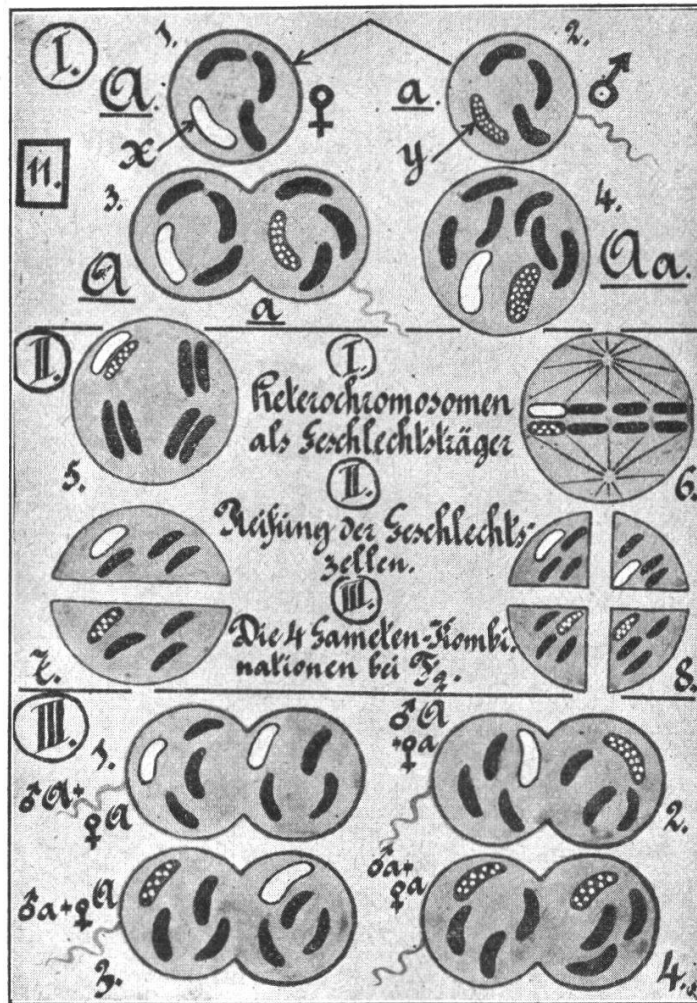 I.
1.
2.
A.
♀
a.
♂
x
y
11.
3.
4.
A
a
Aa.
II.
5.
6.
I.
Heterochromosomen
als Geschlechtsträger
II.
Reifung der Geschlechts-
zellen.
III.
Die 4 Gameten-Kombi-
nationen bei F₂.
7.
8.
III.
1.
♂A+
♀A
♂A
+♀a
2.
♂a+♀A
3.
♂a+
♀a
4.